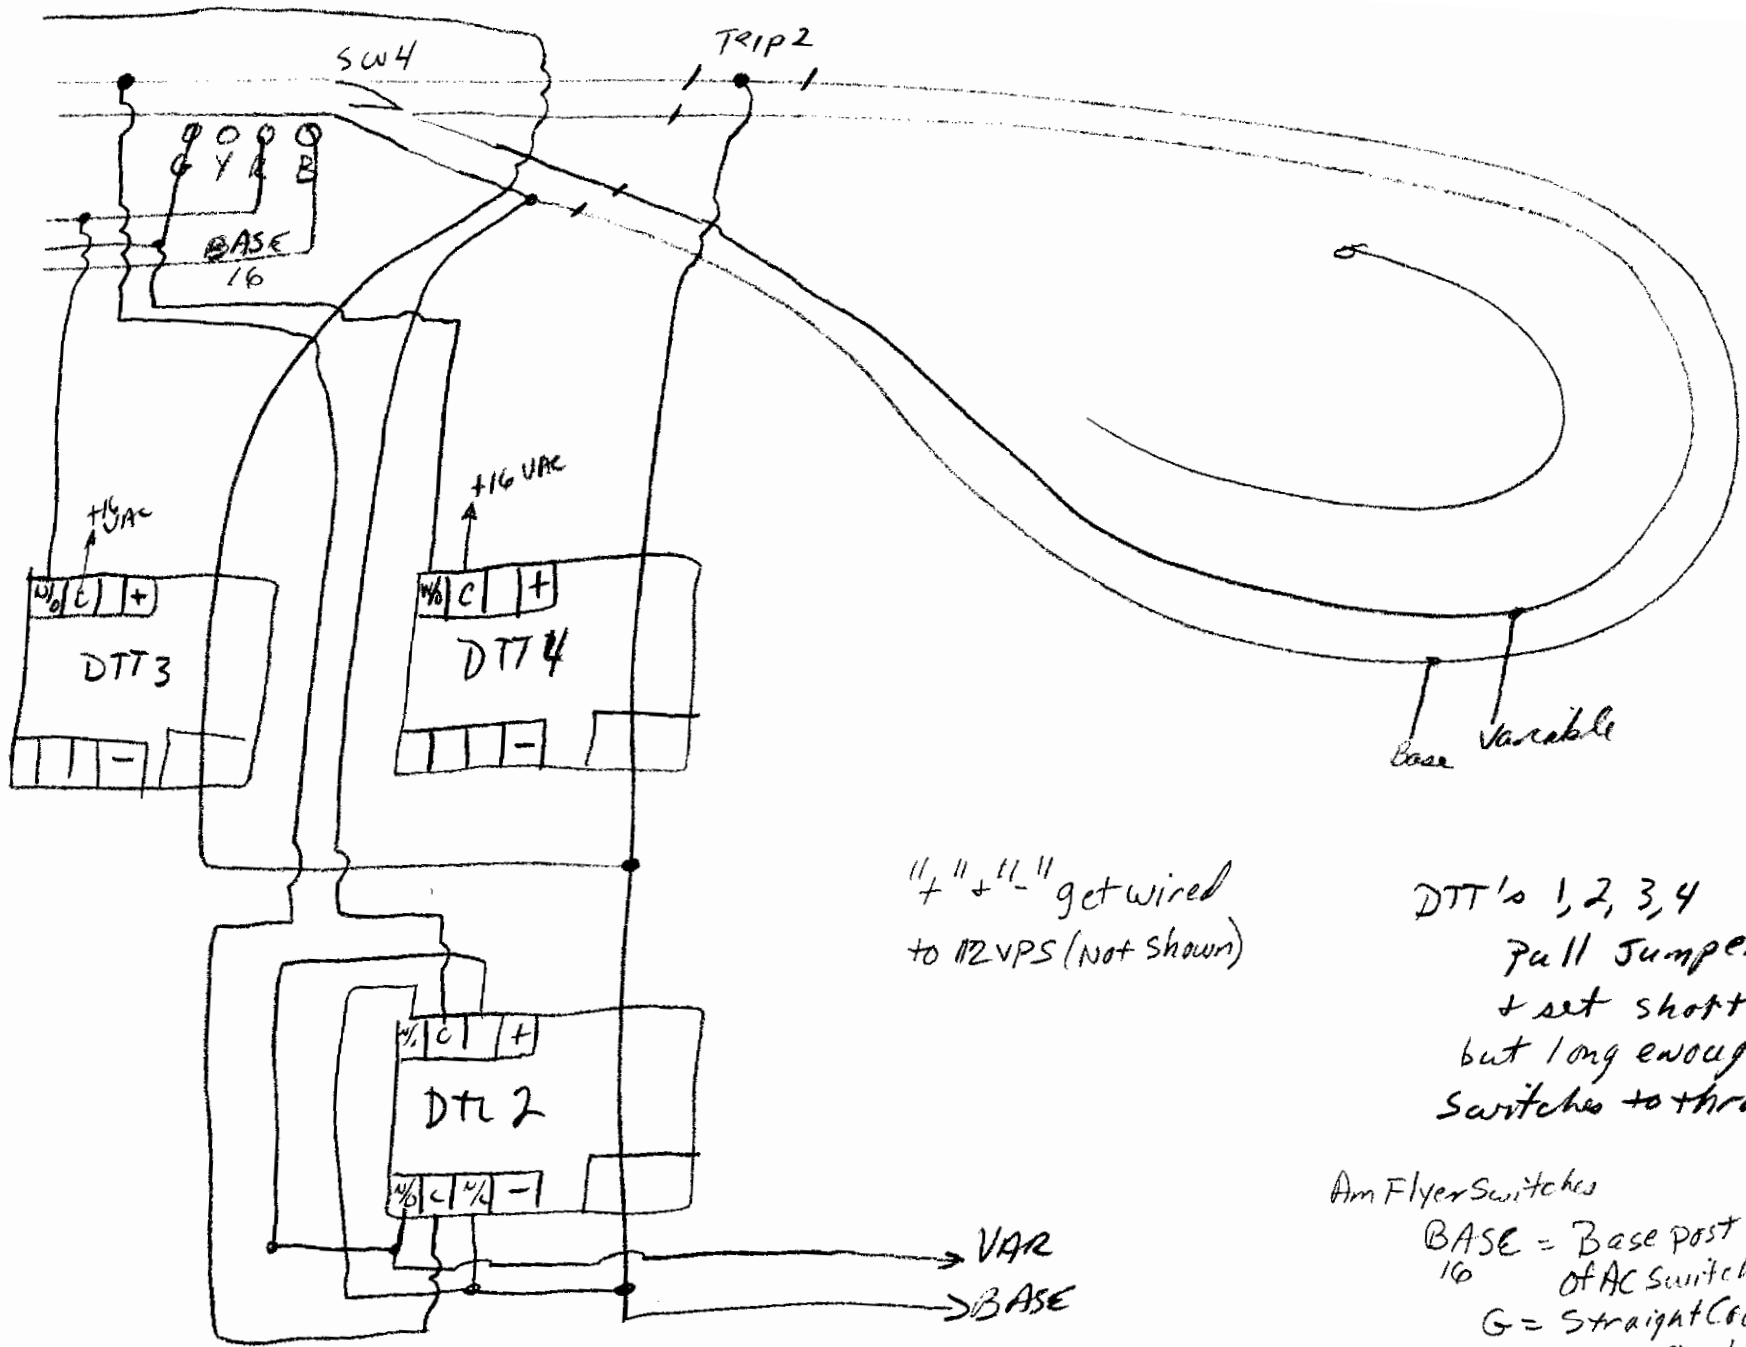 SW4
Trip2
G Y R B
BASE
16
+16
VAC
+16 VAC
N/O C +
DTT3
-
N/O C +
DTT4
-
Base Variable
"+" + "-" get wired
to 12VPS (Not Shown)
DTT's 1, 2, 3, 4
Pull Jumpe
+ set short
but long enoug
Switches to thr
C +
DTT 2
N/O C N/C -
VAR
BASE
Am Flyer Switches
BASE = Base post
16 of AC Switch
G = Straight Co